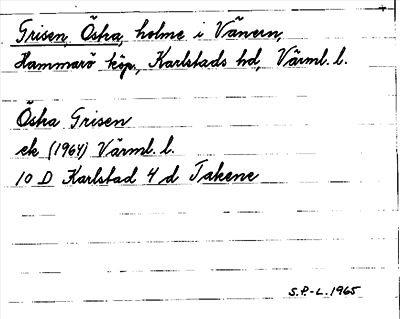 Grisen, Östra, holme i Vänern,
Hammarö köp., Karlstads hd, Värml. l.
Östra Grisen
ek (1964) Värml. l.
10 D Karlstad 4 d Takene
S.P.-L. 1965